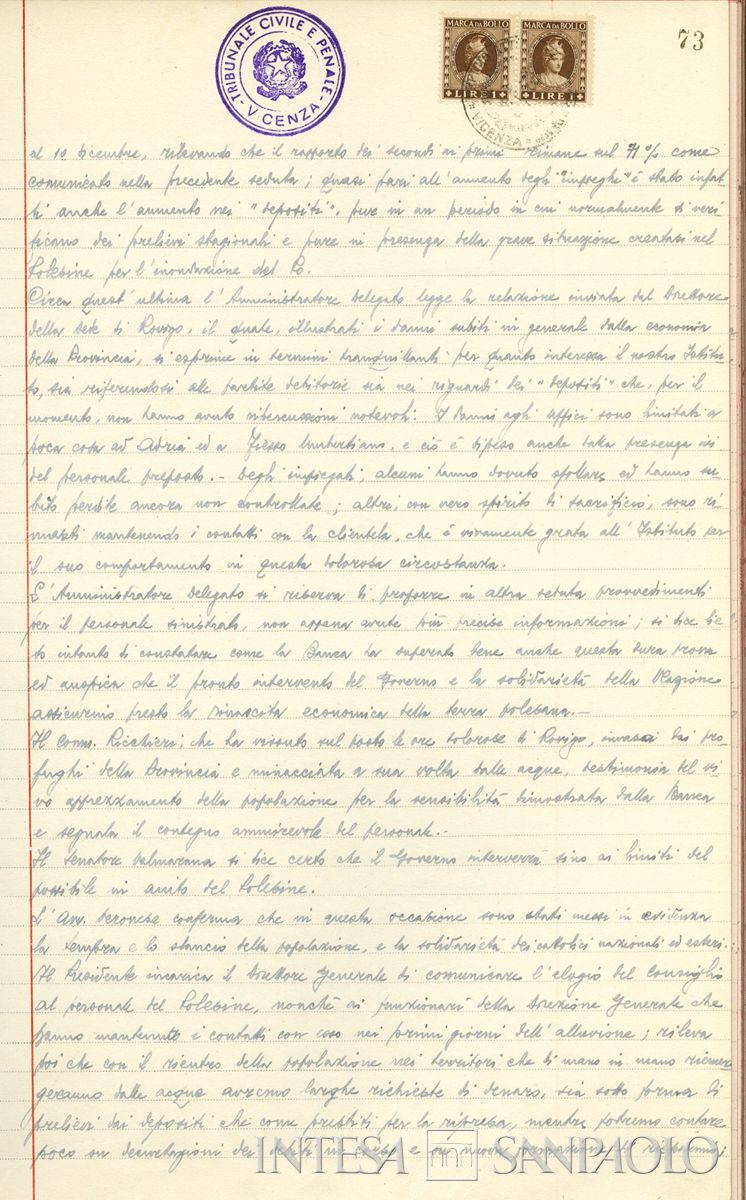 TRIBUNALE CIVILE E PENALE
VICENZA
MARCA DA BOLLO MARCA DA BOLLO
LIRE 1 LIRE 1
VICENZA
73
al 10 dicembre, rilevando che il rapporto dei secondi ai primi rimane sul 71% come
comunicato nella precedente seduta; quasi pari all'aumento degli "impieghi" è stato infat-
ti anche l'aumento nei "depositi", pure in un periodo in cui normalmente si veri
ficano dei prelievi stagionali e pure in presenza della grave situazione creatasi nel
Polesine per l'inondazione del Po.
Circa quest'ultima l'Amministratore Delegato legge la relazione inviata dal Direttore
della Sede di Rovigo, il quale, illustrati i danni subiti in generale dalla economia
della Provincia, si esprime in termini tranquillanti per quanto interessa il nostro Istitu-
to, sia riferendosi alle partite debitorie sia nei riguardi dei "depositi" che, per il
momento, non hanno avuto ripercussioni notevoli. I danni agli uffici sono limitati a
poca cosa ad Adria ed a Fiesso Umbertiano, e ciò è dipeso anche dalla presenza ivi
del personale preposto.- Degli impiegati, alcuni hanno dovuto sfollare ed hanno su-
bito perdite ancora non controllate; altri, con vero spirito di sacrificio, sono ri-
masti mantenendo i contatti con la clientela, che è vivamente grata all'Istituto per
il suo comportamento in questa dolorosa circostanza.
L'Amministratore Delegato si riserva di proporre in altra seduta provvedimenti
per il personale sinistrato, non appena avute più precise informazioni; si dice lie-
to intanto di constatare come la Banca ha superato bene anche questa dura prova
ed auspica che il pronto intervento del Governo e la solidarietà della Nazione
assicurino presto la rinascita economica della terra polesana.-
Il Comm. Ricchieri, che ha vissuto sul posto le ore dolorose di Rovigo, invasa dai pro-
fughi della Provincia e minacciata a sua volta dalle acque, testimonia del vi-
vo apprezzamento della popolazione per la sensibilità dimostrata dalla Banca
e segnala il contegno ammirevole del personale.-
Il Senatore Valmarana si dice certo che il Governo interverrà sino ai limiti del
possibile in aiuto del Polesine.
L'Avv. Veronese conferma che in questa occasione sono stati messi in evidenza
la tempra e lo slancio della popolazione, e la solidarietà dei cattolici nazionali ed esteri.
Il Presidente incarica il Direttore Generale di comunicare l'elogio del Consiglio
al personale del Polesine, nonchè ai funzionari della Direzione Generale che
hanno mantenuto i contatti con esso nei primi giorni dell'alluvione; rileva
poi che con il rientro della popolazione nei territori che di mano in mano riemer
geranno dalle acque avremo larghe richieste di denaro, sia sotto forma di
prelievi dai depositi che come prestiti per la ripresa, mentre potremo contare
poco su decurtazioni dei debiti in corso e su nuova formazione di risparmi;
INTESA SANPAOLO